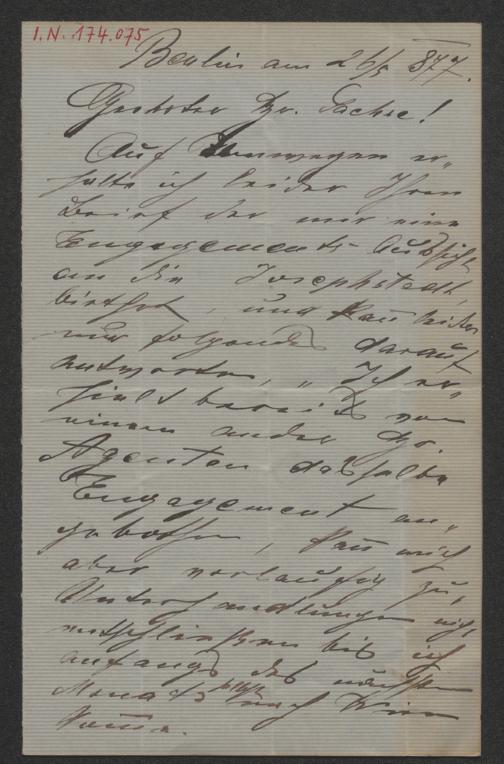 I.N. 174.075
Berlin am 26/5 877.
Geehrter Hr. Sachse!
Auf Umwegen er-
halte ich leider Ihren
Brief der mir eine
Engagements-Aussicht
an die Josephstadt,
biethet, und kan̄ leider
nur folgendes darauf
antworten, „Ich er-
hielt bereits von
einem ander Hr.
Agenten dasselbe
Engagement an-
gebothen, kan̄ mich
aber vorläufig zu
Unterhandlungen nicht
entschließen bis ich
anfangs des nächsten
Monats nach Wien
kom̄e.